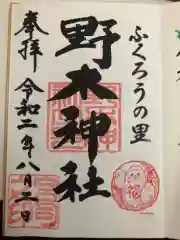 ふくろうの里
野木神社
奉拝
令和二年八月二日